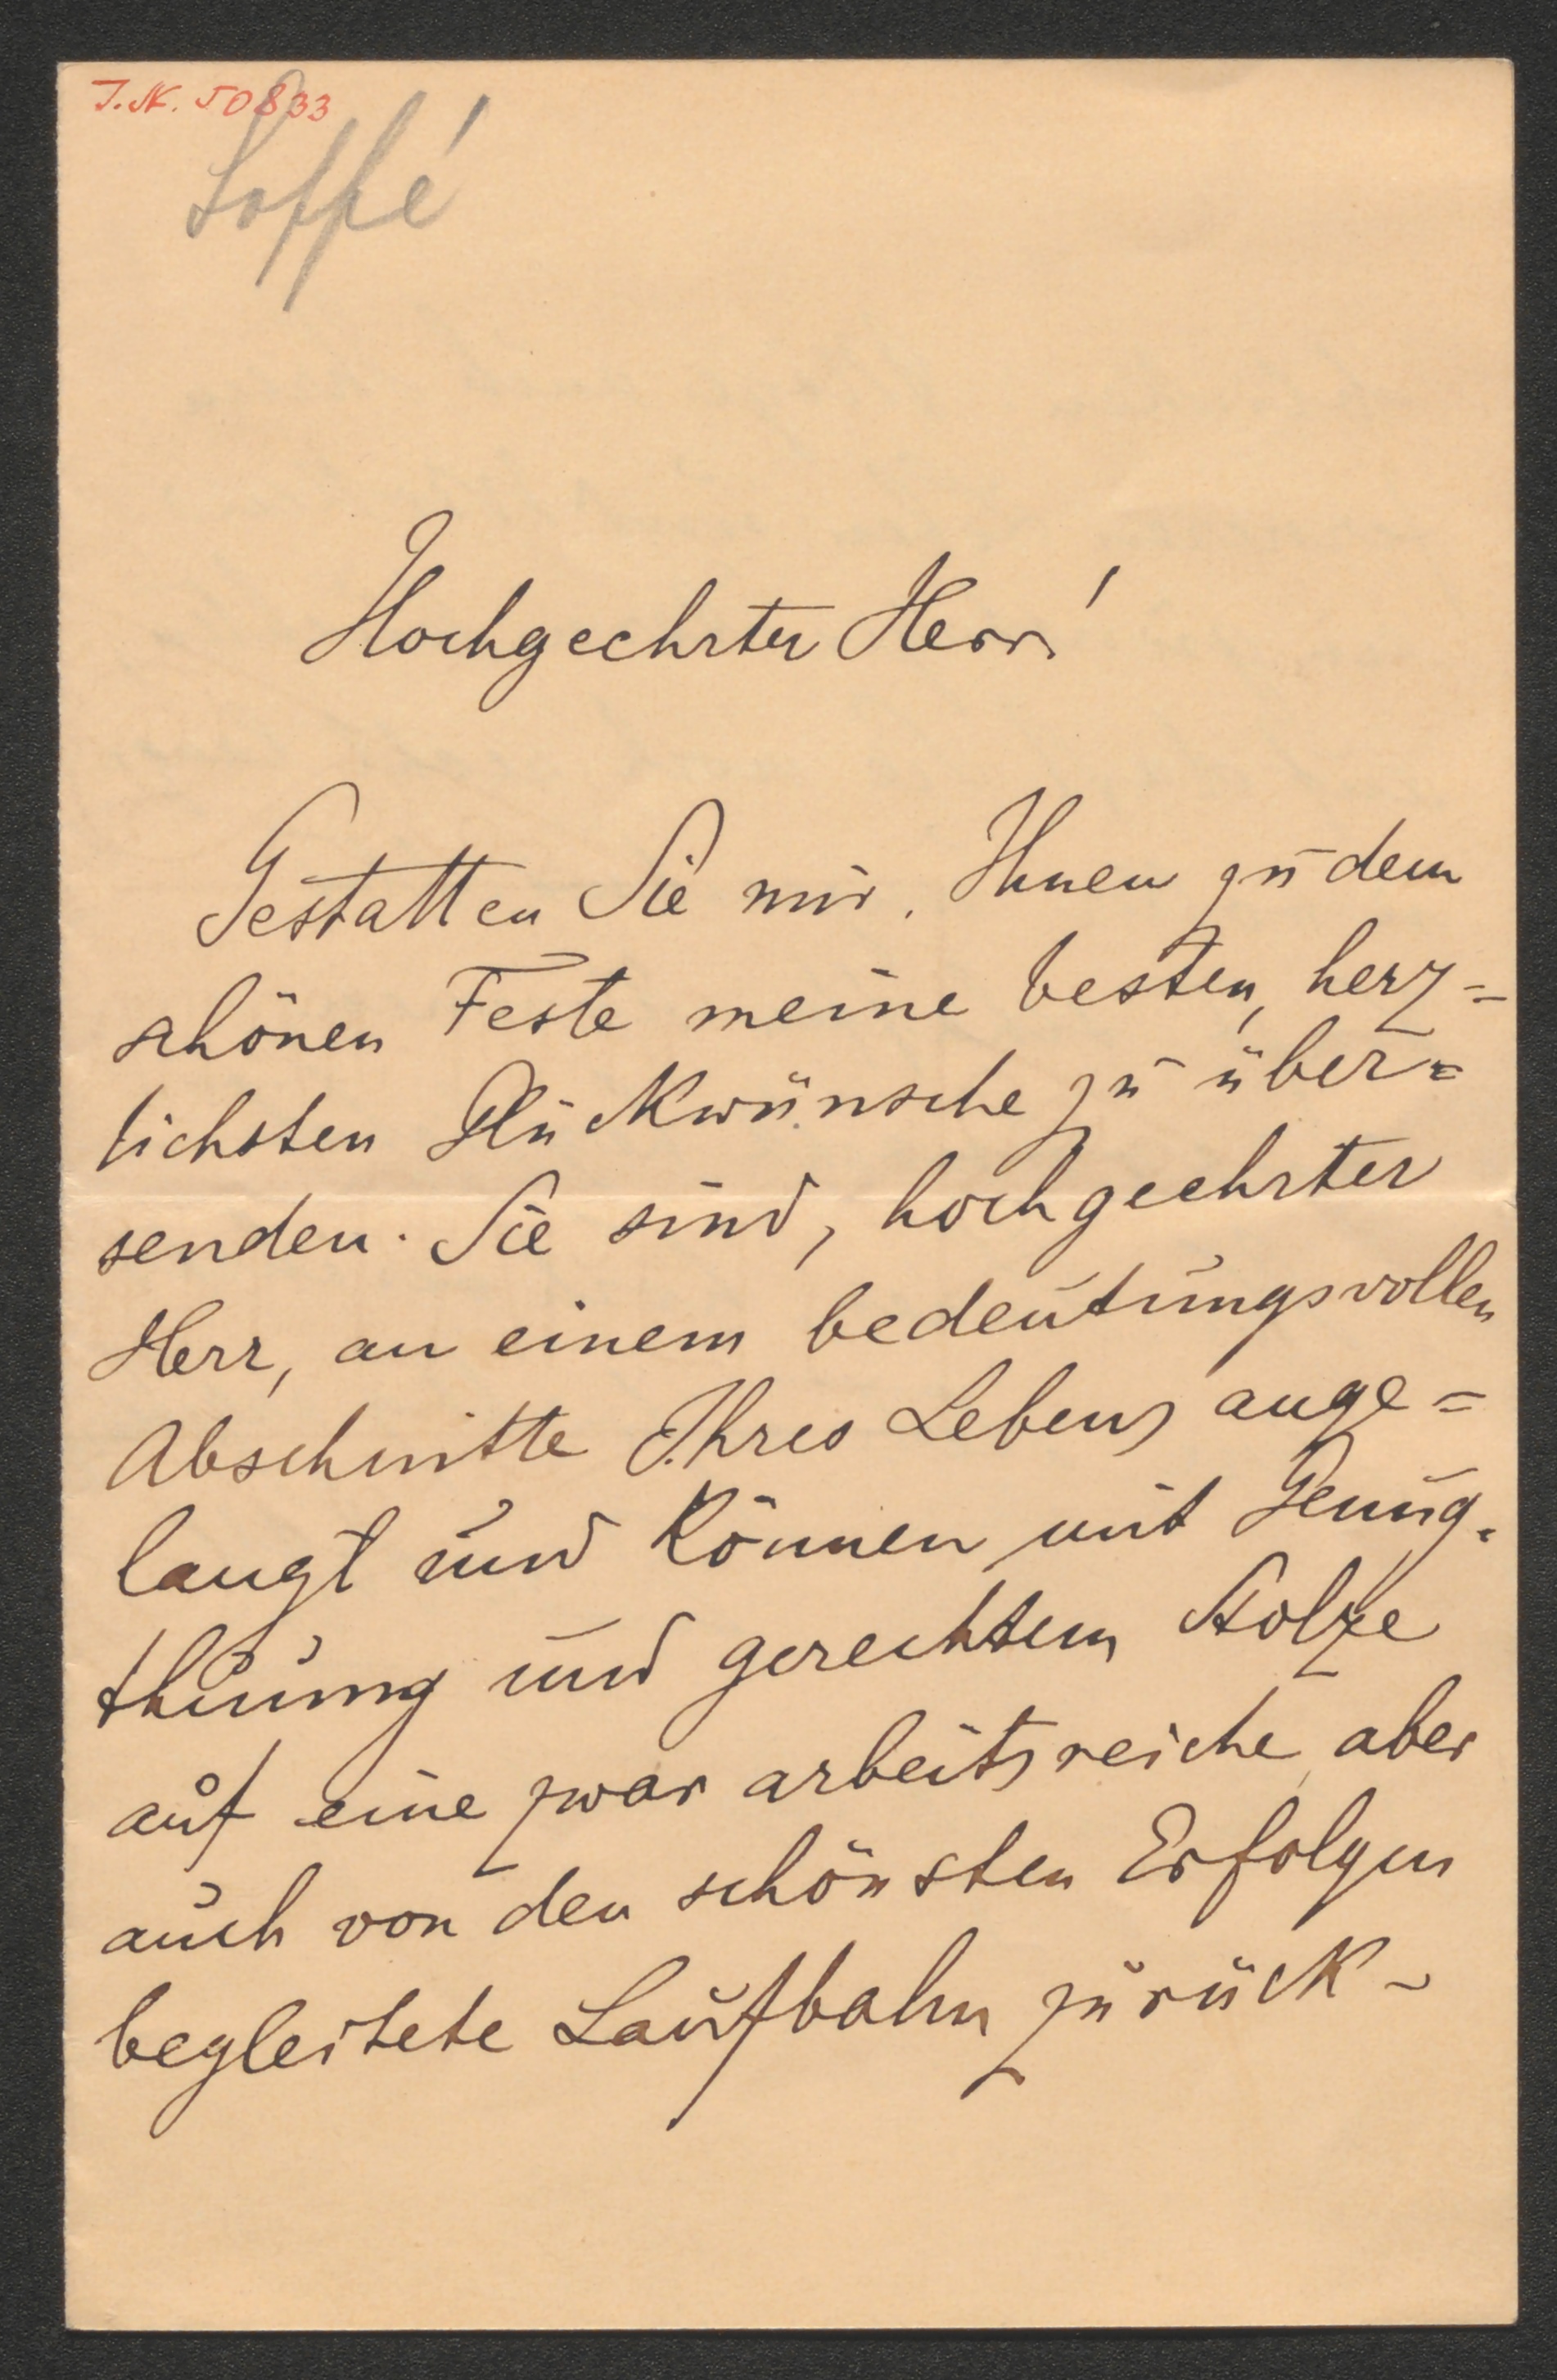 I.N. 50833
Soffé
Hochgeehrter Herr!
Gestatten Sie mir, Ihnen zu dem
schönen Feste meine besten, herz=
lichsten Glückwünsche zu über=
senden. Sie sind, hochgeehrter
Herr, an einem bedeutungsvollen
Abschnitte Ihres Lebens ange=
langt und können mit Genug=
thuung und gerechtem Stolze
auf eine zwar arbeitsreiche, aber
auch von den schönsten Erfolgen
begleitete Laufbahn zurück-